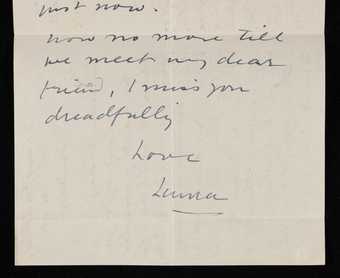 just now.
now no more till
we meet my dear
friend, I miss you
dreadfully
Love
Laura